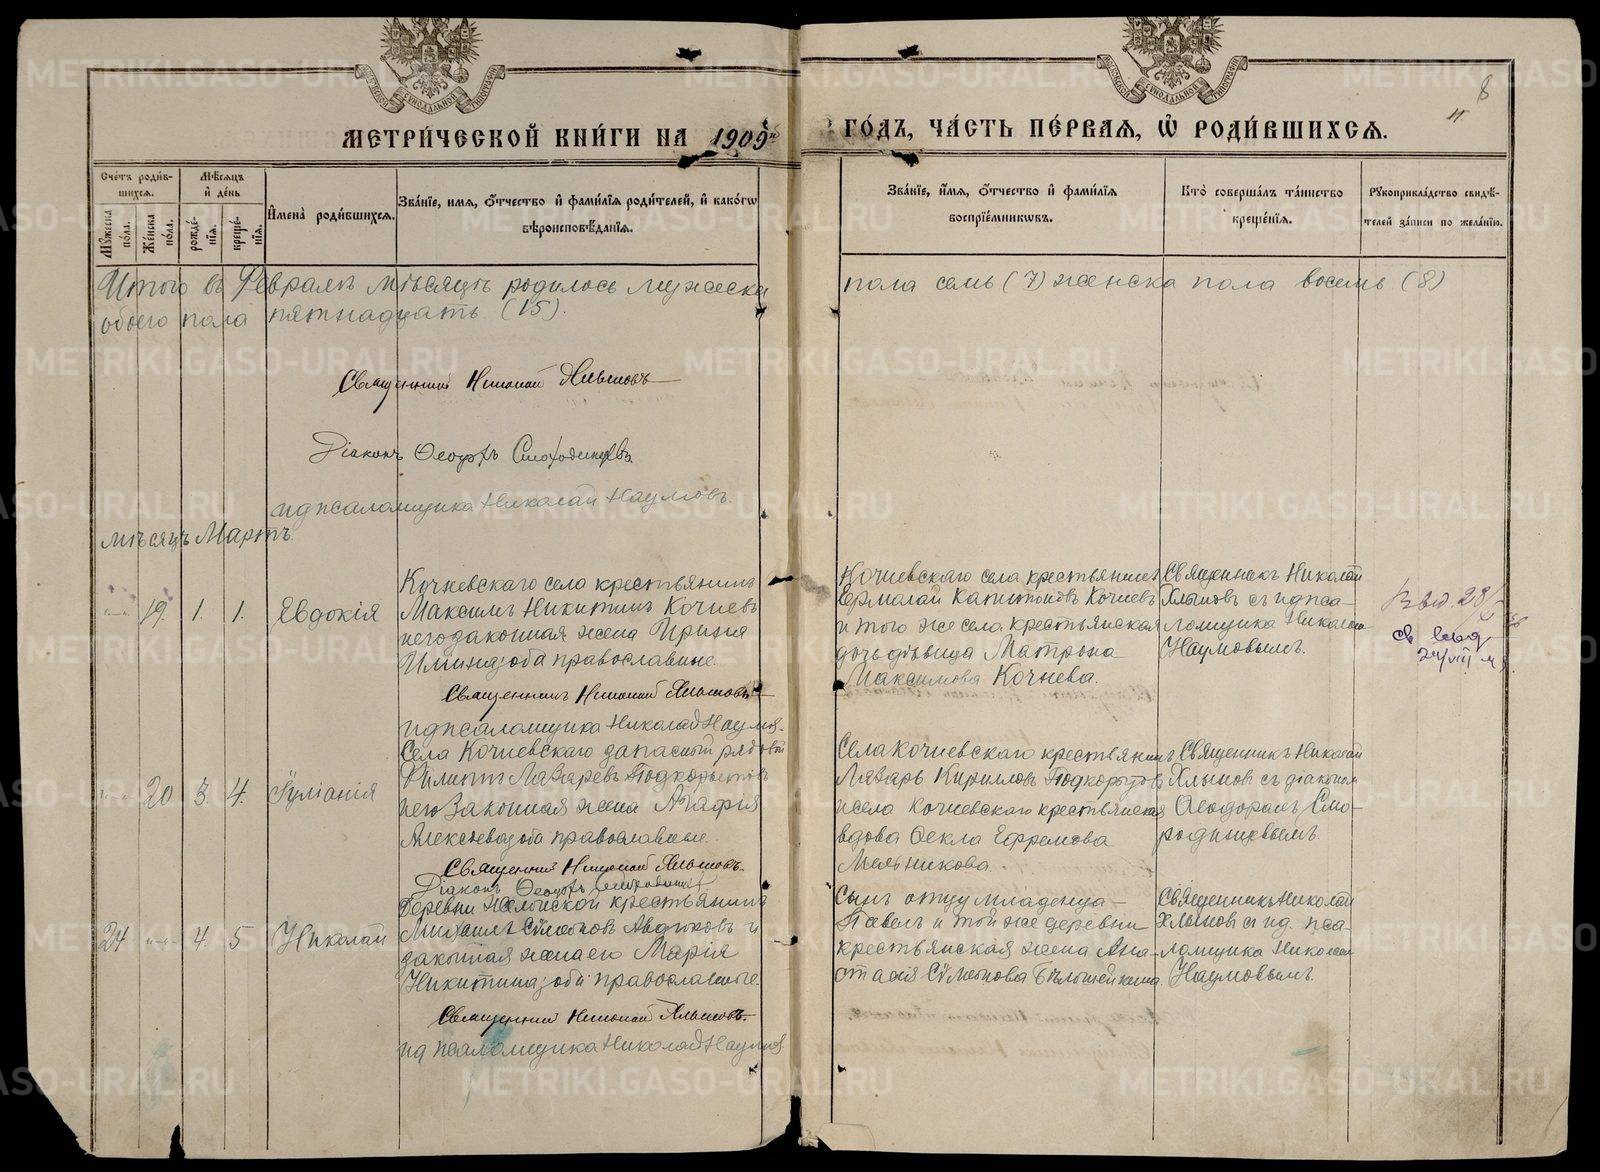 МЕТРИЧЕСКОЙ КНИГИ НА 1909й ГОДЪ, ЧАСТЬ ПЕРВАЯ, Ѡ РОДИВШИХСЯ.
8
Счетъ родившихся.
Мужеска пола.
Женска пола.
Мѣсяцъ и день
рожденія.
крещенія.
Имена родившихся.
Званіе, имя, отчество и фамилія родителей, и какогѡ
вѣроисповѣданія.
Званіе, имя, отчество и фамилія
воспріемникѡвъ.
Кто совершалъ таинство
крещенія.
Рукоприкладство свидѣ-
телей записи по желанію.
Итого въ Февралѣ мѣсяцѣ родилось мужеска пола семь (7) женска пола восемь (8)
обоего пола пятнадцать (15).
Священникъ Николай Хлыновъ
Діаконъ Ѳеодоръ Смородинцевъ
ид псаломщика Николай Наумовъ.
мѣсяцъ Мартъ.
19. 1. 1. Евдокія
Кочневскаго села крестьянинъ
Максимъ Никитинъ Кочневъ
и его законная жена Ирина
Ильина; оба православные.
Кочневскаго села крестьянинъ
Ермолай Капитоновъ Кочневъ
и того же села крестьянская
дочь дѣвица Матрона
Максимова Кочнева.
Священникъ Николай
Хлыновъ съ ид пса-
ломщика Николаемъ
Наумовымъ.
Священникъ Николай Хлыновъ
ид псаломщика Николай Наумов.
20 3. 4. Іуліанія
Села Кочневскаго запасный рядовой
Филиппъ Лазаревъ Подкорытовъ
и его Законная жена Агафія
Алексеева; оба православные.
Села Кочневскаго крестьянинъ
Лазарь Кирилловъ Подкорытовъ
и села Кочневскаго крестьянская
вдова Ѳекла Ефремова
Мельникова.
Священникъ Николай
Хлыновъ съ діакономъ
Ѳеодоромъ Смо-
родинцевымъ.
Священникъ Николай Хлыновъ.
Діаконъ Ѳеодоръ Смородинцевъ
24 4. 5 Николай
Деревни крестьянинъ
Михаилъ Сѵмеоновъ Авдюковъ и
законная жена его Марія
Никитина; оба православные.
Сынъ отцу младенца
Павелъ и той же деревни
крестьянская жена Ана-
стасія Сѵмеонова Бѣлошейкина.
Священникъ Николай
Хлыновъ съ ид. пса-
ломщика Николаем
Наумовымъ.
Священникъ Николай Хлыновъ.
ид псаломщика Николай Наумов